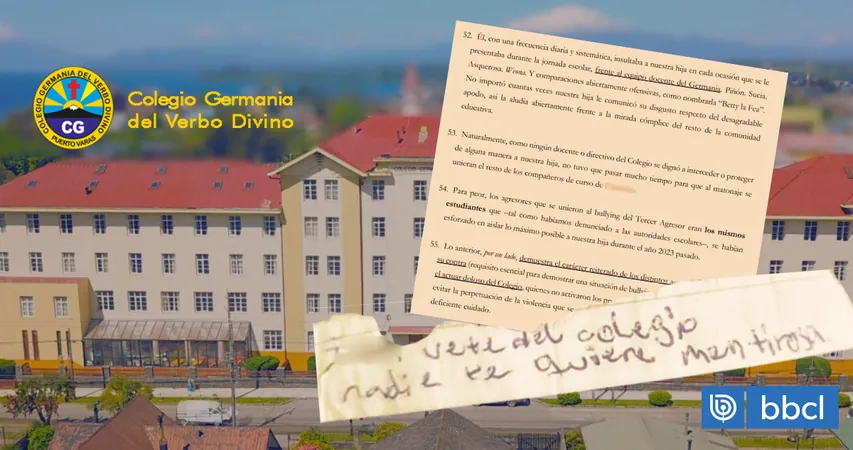 COLEGIO GERMANIA DEL VERBO DIVINO
CG
PUERTO VARAS
Colegio Germania
del Verbo Divino
52. Él, con una frecuencia diaria y sistemática, insultaba a nuestra hija en cada ocasión que se le
presentaba durante la jornada escolar, frente al equipo docente del Germania. Piñón. Sucia.
Asquerosa. Weona. Y comparaciones abiertamente ofensivas, como nombrarla "Betty la Fea".
No importó cuantas veces nuestra hija le comunicó su disgusto respecto del desagradable
apodo, así la aludía abiertamente frente a la mirada cómplice del resto de la comunidad
educativa.
53. Naturalmente, como ningún docente o directivo del Colegio se dignó a interceder o proteger
de alguna manera a nuestra hija, no tuvo que pasar mucho tiempo para que al matonaje se
unieran el resto de los compañeros de curso de
54. Para peor, los agresores que se unieron al bullying del Tercer Agresor eran los mismos
estudiantes que –tal como habíamos denunciado a las autoridades escolares–, se habían
esforzado en aislar lo máximo posible a nuestra hija durante el año 2023 pasado.
55. Lo anterior, por un lado, demuestra el carácter reiterado de los distintos
su contra (requisito esencial para demostrar una situación de
el actuar doloso del Colegio, quienes no activaron los
evitar la perpetuación de la violencia que se
deficiente cuidado.
vete del colegio
nadie te quiere mentirosa
bbcl